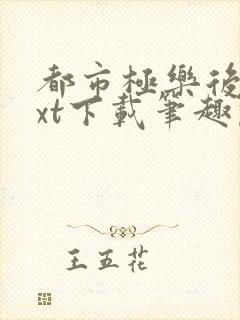 都市極樂後
xt下載筆趣
王五花